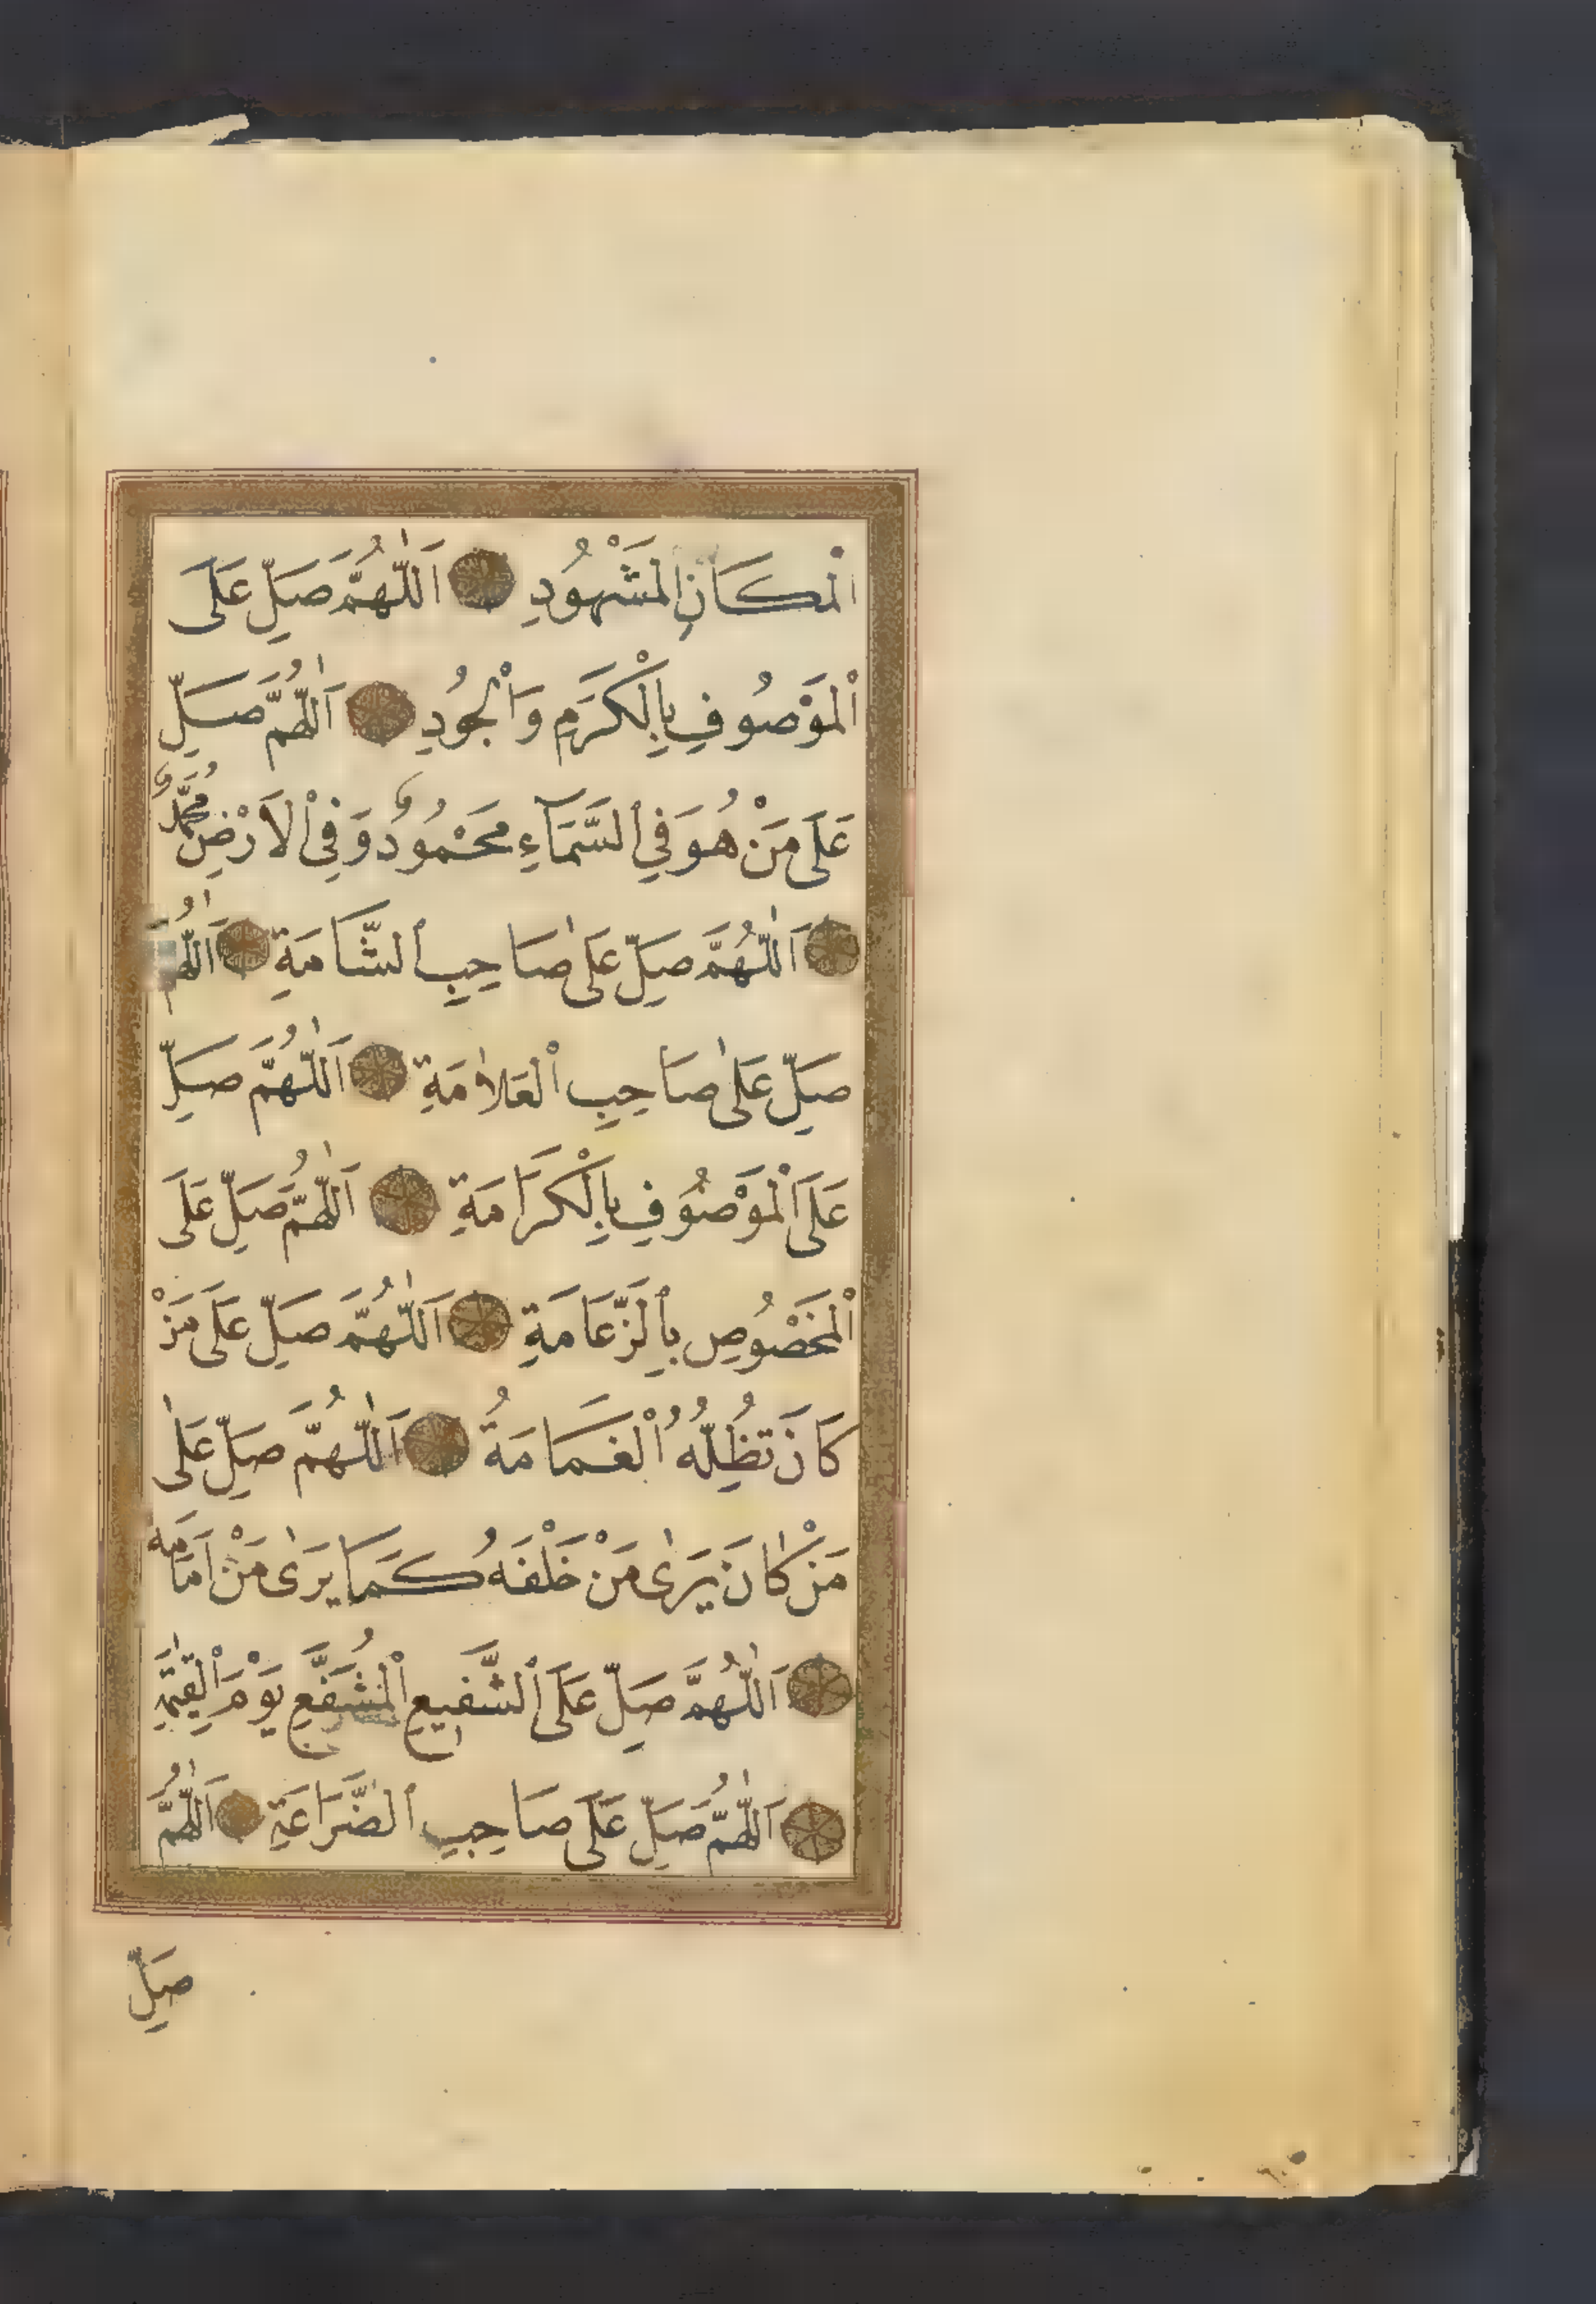 اَلْمَكَانِ الْمَشْهُودِ اَللّٰهُمَّ صَلِّ عَلَى
الْمَوْصُوفِ بِالْكَرَمِ وَالْجُودِ اَللّٰهُمَّ صَلِّ
عَلَى مَنْ هُوَ فِي السَّمَآءِ مَحْمُودٌ وَفِي الْاَرْضِ مُحَمَّدٌ
اَللّٰهُمَّ صَلِّ عَلٰى صَاحِبِ الشَّامَةِ اَللّٰهُمَّ
صَلِّ عَلٰى صَاحِبِ الْعَلَامَةِ اَللّٰهُمَّ صَلِّ
عَلَى الْمَوْصُوفِ بِالْكَرَامَةِ اَللّٰهُمَّ صَلِّ عَلَى
الْمَخْصُوصِ بِالزَّعَامَةِ اَللّٰهُمَّ صَلِّ عَلَى مَنْ
كَانَ تُظِلُّهُ الْغَمَامَةُ اَللّٰهُمَّ صَلِّ عَلٰى
مَنْ كَانَ يَرٰى مَنْ خَلْفَهُ كَمَا يَرٰى مَنْ اَمَامَهُ
اَللّٰهُمَّ صَلِّ عَلَى الشَّفِيعِ الْمُشَفَّعِ يَوْمَ الْقِيٰمَةِ
اَللّٰهُمَّ صَلِّ عَلَى صَاحِبِ الضَّرَاعَةِ اَللّٰهُمَّ
صَلِّ